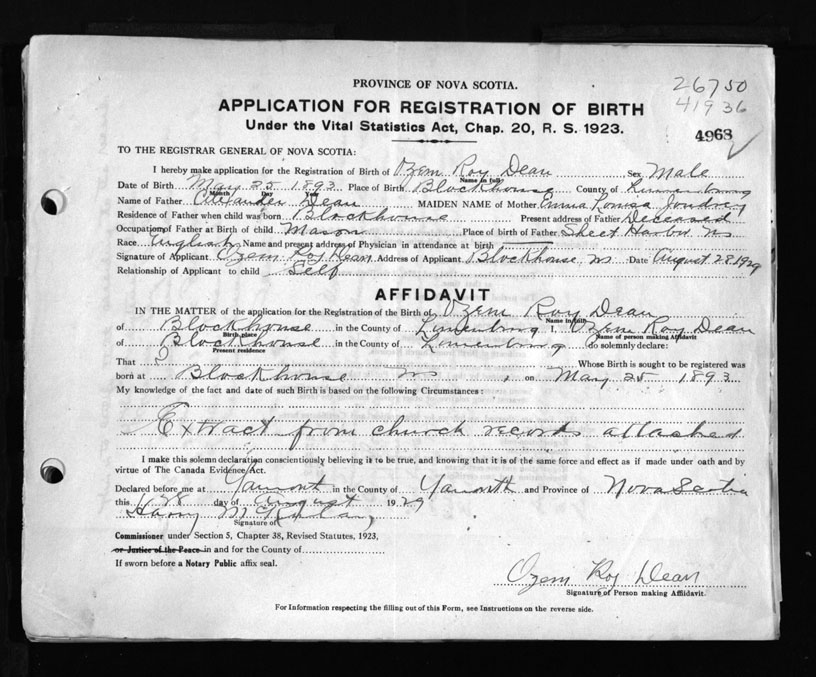 PROVINCE OF NOVA SCOTIA.
26750
41936
APPLICATION FOR REGISTRATION OF BIRTH
Under the Vital Statistics Act, Chap. 20, R. S. 1923.
4968
TO THE REGISTRAR GENERAL OF NOVA SCOTIA:
I hereby make application for the Registration of Birth of Ozem Roy Dean Sex Male
Name in full
Date of Birth May 25 1893 Place of Birth Blockhouse County of Lunenburg
Month Day Year
Name of Father Alexander Dean MAIDEN NAME of Mother Emma Louisa Joudrey
Residence of Father when child was born Blockhouse Present address of Father Deceased
Occupation of Father at Birth of child Mason Place of birth of Father Sheet Harbor NS
Race English Name and present address of Physician in attendance at birth
Signature of Applicant Ozem Roy Dean Address of Applicant Blockhouse, NS Date August 28 1929
Relationship of Applicant to child Self
AFFIDAVIT
IN THE MATTER of the application for the Registration of the Birth of Ozem Roy Dean
Name in full
of Blockhouse in the County of Lunenburg I, Ozem Roy Dean
Birth place Name of person making Affidavit
of Blockhouse in the County of Lunenburg do solemnly declare:
Present residence
That I Whose Birth is sought to be registered was
born at Blockhouse NS, on May 25 1893
My knowledge of the fact and date of such Birth is based on the following Circumstances:
Extract from church records attached
I make this solemn declaration conscientiously believing is to be true, and knowing that it is of the same force and effect as if made under oath and by
virtue of The Canada Evidence Act.
Declared before me at Yarmouth in the County of Yarmouth and Province of Nova Scotia
this 28 day of August 1929
Harry
Signature of
Commissioner under Section 5, Chapter 38, Revised Statutes, 1923,
or Justice of the Peace in and for the County of
If sworn before a Notary Public affix seal.
Ozem Roy Dean
Signature of Person making Affidavit.
For Information respecting the filling out of this Form, see Instructions on the reverse side.